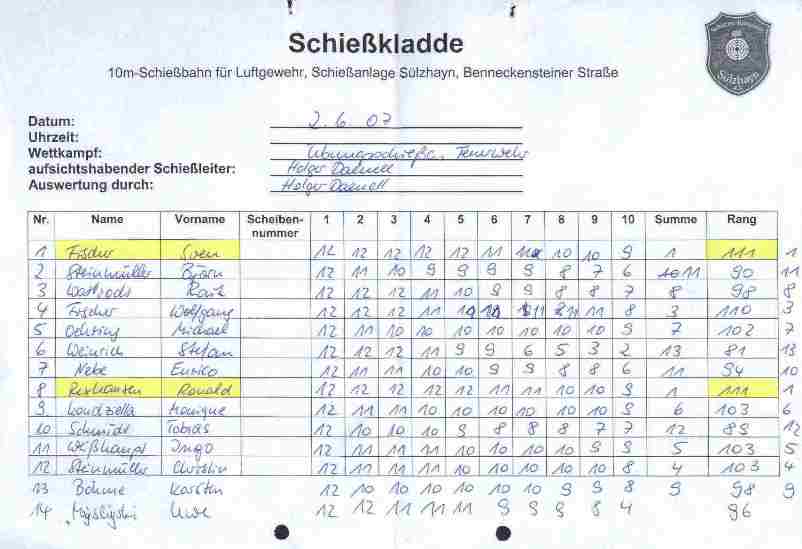 Schießkladde
10m-Schießbahn für Luftgewehr, Schießanlage Sülzhayn, Benneckensteiner Straße
Sülzhayn
Datum: 2.6.07
Uhrzeit:
Wettkampf: Feuerwehr
aufsichtshabender Schießleiter: Holger
Auswertung durch: Holger
Nr. Name Vorname Scheiben-nummer 1 2 3 4 5 6 7 8 9 10 Summe Rang
1 Fischer Sven 12 12 12 12 12 11 11 10 10 9 1 111 1
2 Steinmüller Björn 12 11 10 9 9 9 9 8 7 6 11 90 11
3 12 12 12 11 10 9 9 8 8 7 8 98 8
4 Fischer Wolfgang 12 12 12 11 11 11 8 3 110 3
5 Oehring Michael 12 11 10 10 10 10 10 10 10 9 7 102 7
6 Weinrich Stefan 12 12 12 11 9 9 6 5 3 2 13 81 13
7 Nebe Enrico 12 11 11 10 10 9 9 8 8 6 11 94 10
8 Ronald 12 12 12 12 12 11 11 10 10 9 1 111 1
9. Monique 12 11 11 10 10 10 10 10 10 9 6 103 6
10 Schmidt Tobias 12 10 10 10 9 8 8 8 7 7 12 89 12
11 Ingo 12 11 11 11 10 10 10 10 9 9 5 103 5
12 Steinmüller Christin 12 11 11 11 10 10 10 10 10 8 4 103 4
13 Böhme Karsten 12 10 10 10 10 10 10 9 9 8 9 98 9
14 Uwe 12 12 11 11 11 9 9 9 8 4 96